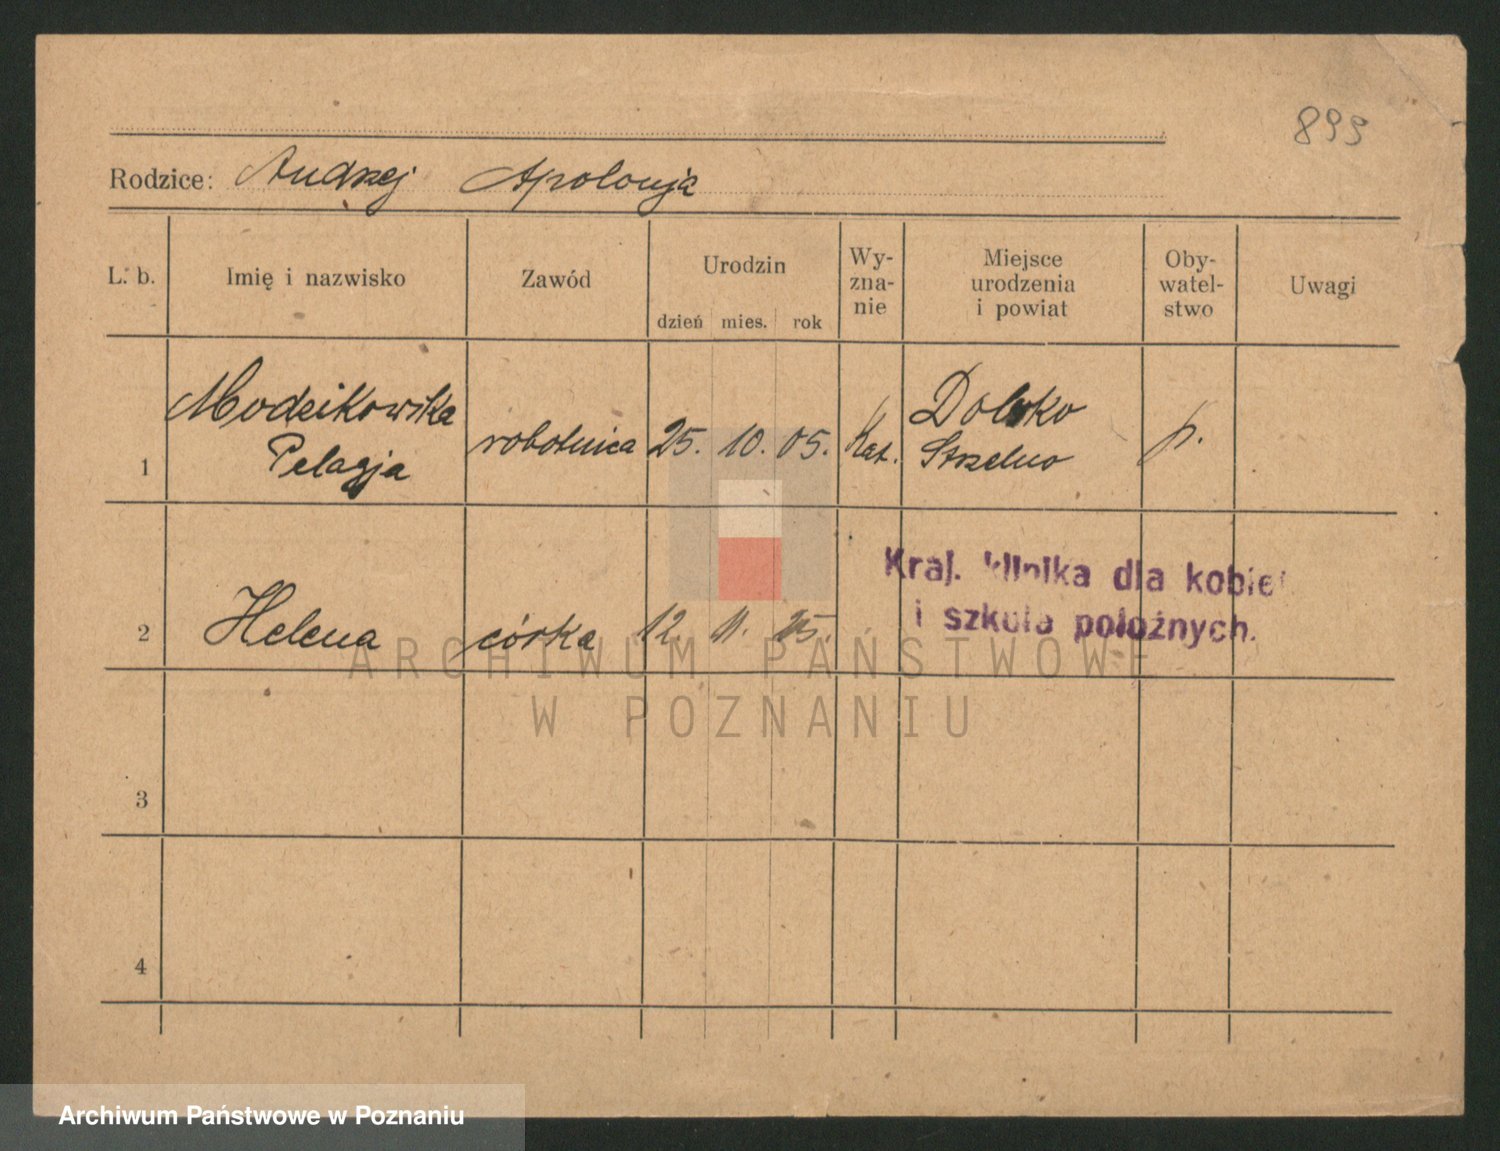 899
Rodzice: Andrzej Apolonja
L. b.
Imię i nazwisko
Zawód
Urodzin
dzień mies. rok
Wy-
zna-
nie
Miejsce
urodzenia
i powiat
Oby-
watel-
stwo
Uwagi
1
Modzikowska
Pelagja
robotnica
25. 10. 05.
Kat.
Dolsko
Strzelno
p.
2
Helena
córka
12. 11. 25.
Kraj. klinika dla kobiet
i szkoła położnych.
3
4
ARCHIWUM PAŃSTWOWE
W POZNANIU
Archiwum Państwowe w Poznaniu